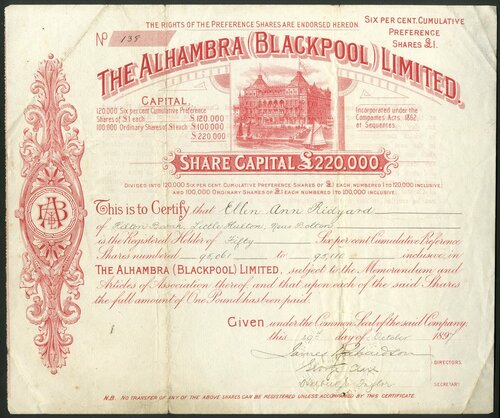 THE RIGHTS OF THE PREFERENCE SHARES ARE ENDORSED HEREON.
SIX PER CENT. CUMULATIVE
PREFERENCE
SHARES £1.
No 135
THE ALHAMBRA (BLACKPOOL) LIMITED.
CAPITAL.
120,000 Six per cent Cumulative Preference
Shares of £1 each £120,000
100,000 Ordinary Shares of £1 each £100,000
£220,000
Incorporated under the
Companies Acts, 1862,
et Sequences.
SHARE CAPITAL £220,000
DIVIDED INTO 120,000 SIX PER CENT. CUMULATIVE PREFERENCE SHARES OF £1 EACH NUMBERED 1 TO 120,000 INCLUSIVE;
AND 100,000 ORDINARY SHARES OF £1 EACH NUMBERED 1 TO 100,000 INCLUSIVE.
AB
This is to Certify that Ellen Ann Ridyard
of Bank, Little Hulton, Near Bolton
is the Registered Holder of Fifty Six per cent Cumulative Preference
Shares numbered 95,061 to 95,110 inclusive, in
THE ALHAMBRA (BLACKPOOL) LIMITED, subject to the Memorandum and
Articles of Association thereof, and that upon each of the said Shares
the full amount of One Pound has been paid.
Given under the Common Seal of the said Company
this 19th day of October 1897
James Richardson
DIRECTORS.
Taylor
SECRETARY.
N.B. NO TRANSFER OF ANY OF THE ABOVE SHARES CAN BE REGISTERED UNLESS ACCOMPANIED BY THIS CERTIFICATE.